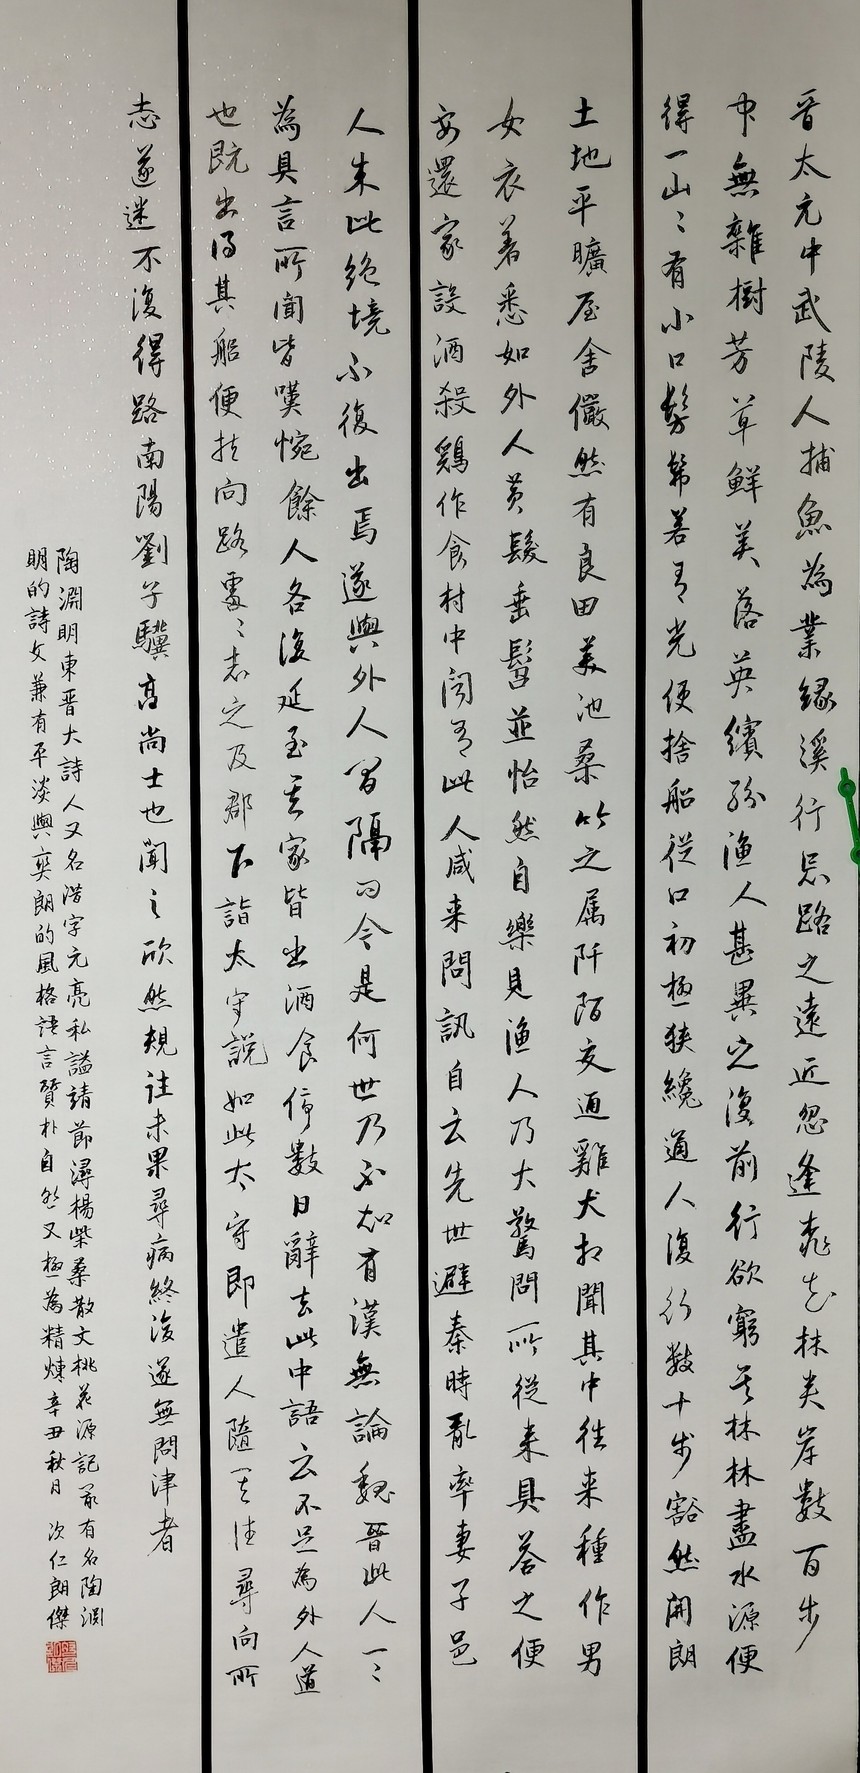 晉太元中武陵人捕魚為業緣溪行忘路之遠近忽逢桃花林夾岸數百步
中無雜樹芳草鮮美落英繽紛漁人甚異之復前行欲窮其林林盡水源便
得一山〻有小口髣髴若有光便捨船從口初極狹纔通人復行數十步豁然開朗
土地平曠屋舍儼然有良田美池桑竹之属阡陌交通雞犬相聞其中往来種作男
女衣著悉如外人黃髮垂髫並怡然自樂見漁人乃大驚問所從来具答之便
要還家設酒殺鷄作食村中聞有此人咸来問訊自云先世避秦時亂率妻子邑
人来此絶境不復出焉遂與外人間隔問今是何世乃不知有漢無論魏晉此人一〻
為具言所聞皆嘆惋餘人各復延至其家皆出酒食停數日辭去此中語云不足為外人道
也既出得其船便扶向路處〻志之及郡下詣太守說如此太守即遣人隨其往尋向所
志遂迷不復得路南陽劉子驥高尚士也聞之欣然規往未果尋病終後遂無問津者
陶淵明東晉大詩人又名潛字元亮私謚靖節潯楊柴桑散文桃花源記最有名陶淵
明的詩文兼有平淡與爽朗的風格語言質朴自然又極為精煉辛丑秋月 次仁朗傑